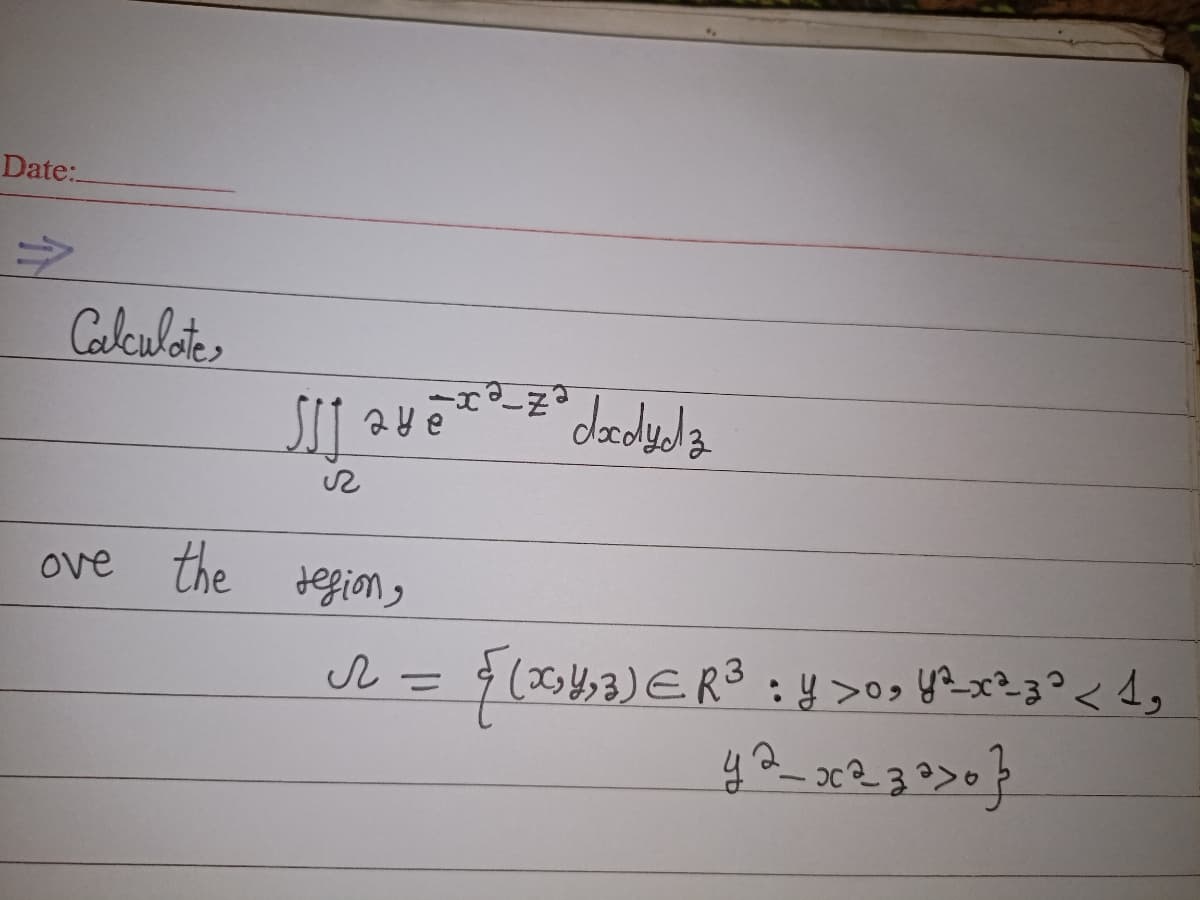 Date:
⇒
Calculate,
∭_Ω 2ye^{-x²-z²} dxdydz
ove the region,
Ω = {(x,y,z) ∈ R³ : y >0, y²-x²-z² < 1,
y²-x²-z²>0}